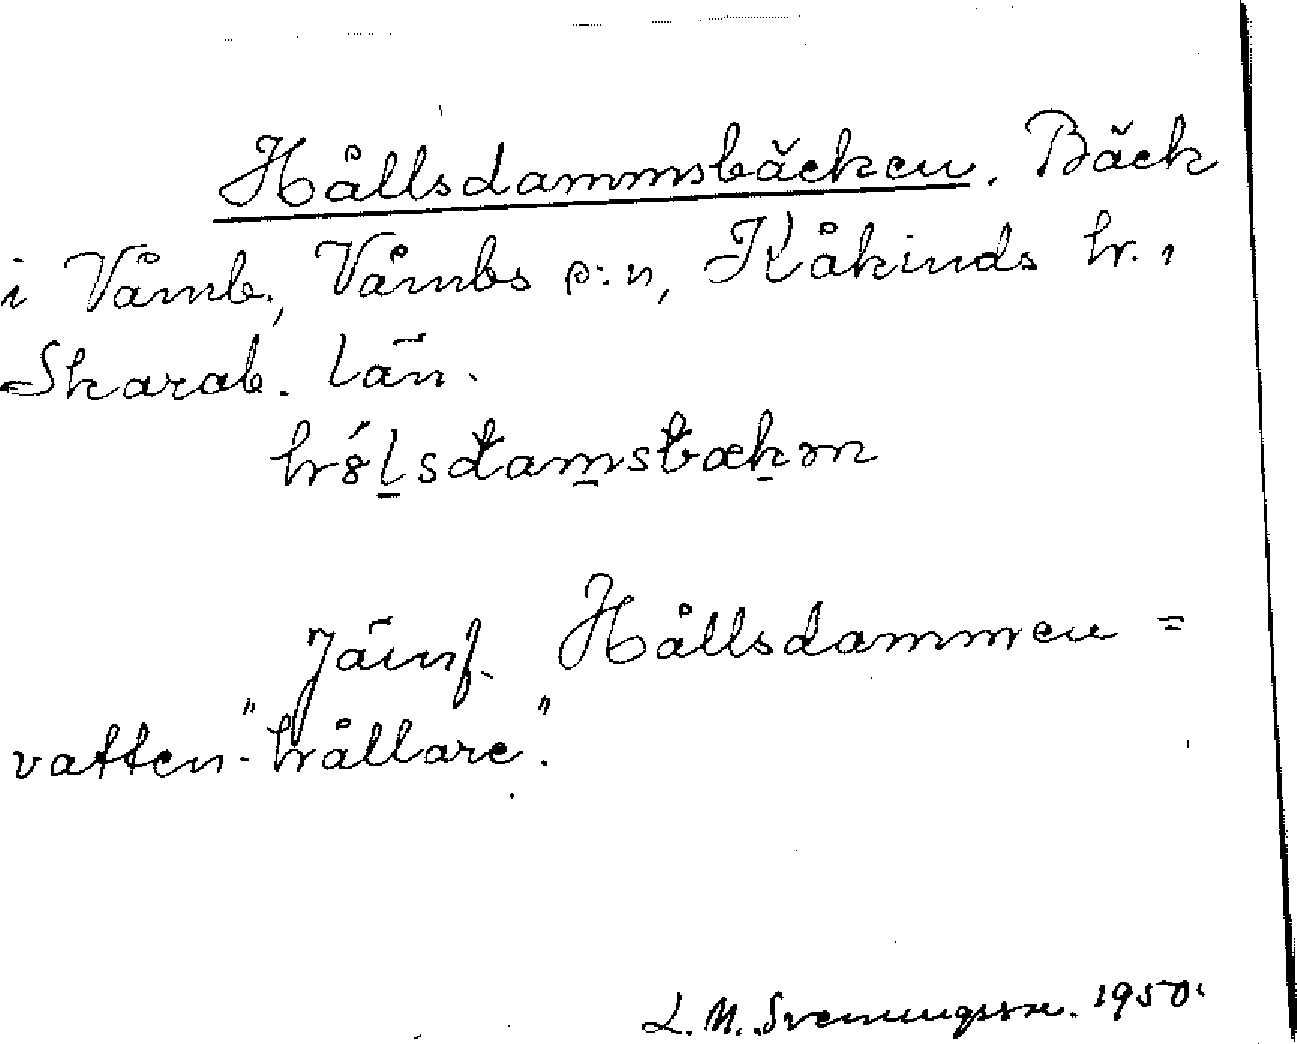 Hållsdammsbäcken. Bäck
i Våmb, Våmbs s:n, Kåkinds hr.,
Skarab. län.
Jämf. Hållsdammen =
vatten-"hållare".
L. M. Svenungsson. 1950.